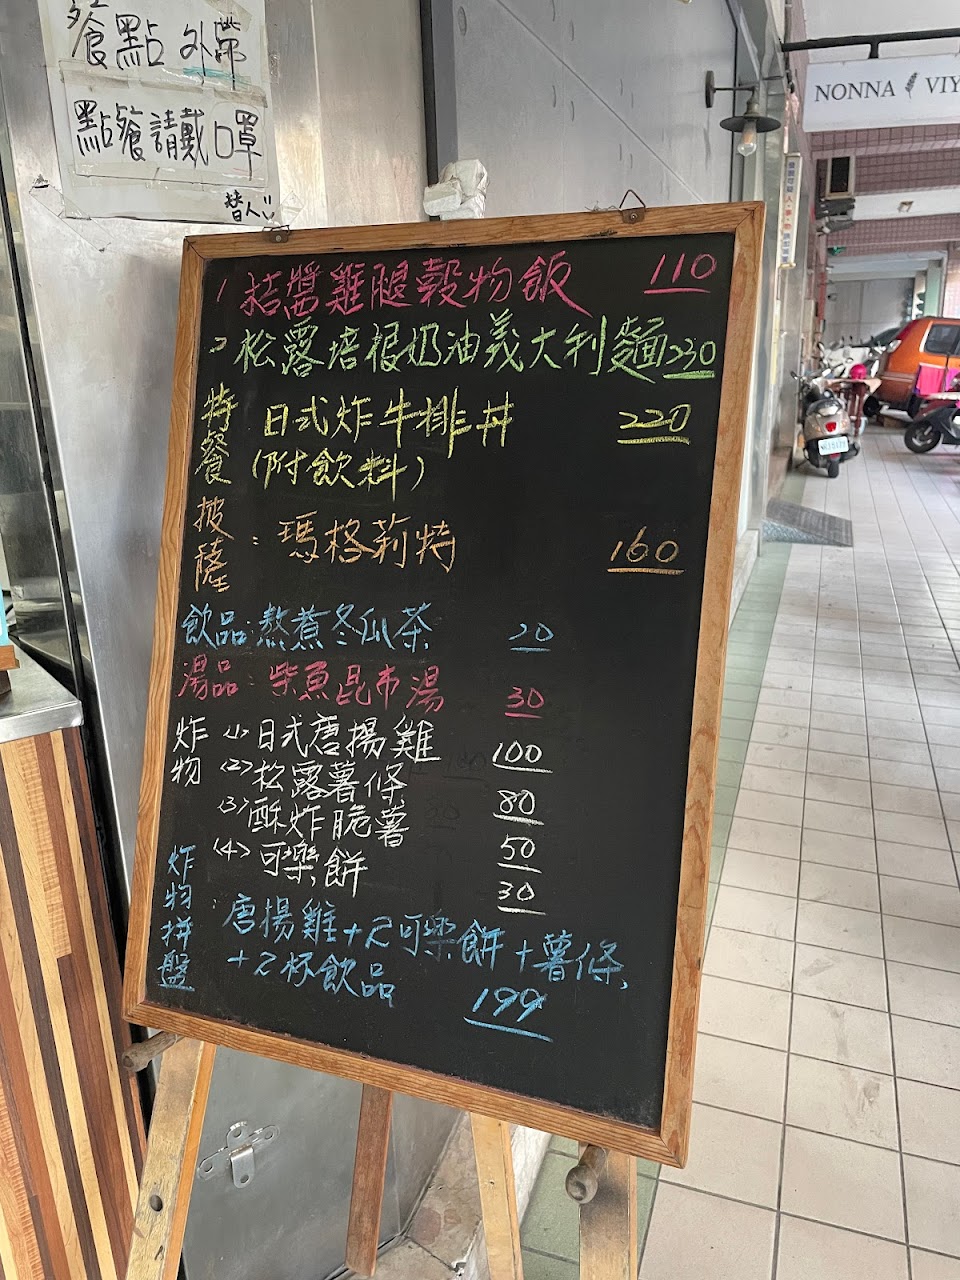 餐點外帶
點餐請戴口罩
替人
NONNA VIY
1 桔醬雞腿穀物飯 110
2 松露培根奶油義大利麵 230
特餐 日式炸牛排丼 220
(附飲料)
披薩：瑪格莉特 160
飲品：熬煮冬瓜茶 20
湯品：柴魚昆布湯 30
炸物 (1) 日式唐揚雞 100
(2) 松露薯條 80
(3) 酥炸脆薯 50
(4) 可樂餅 30
炸物拼盤：唐揚雞+2可樂餅+薯條,
+2杯飲品 199